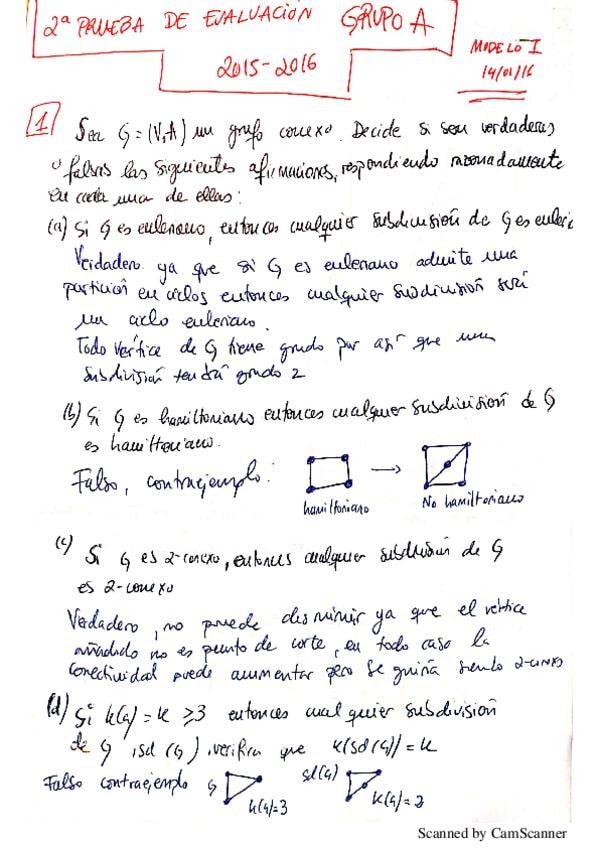 2ª PRUEBA DE EVALUACIÓN GRUPO A
2015-2016
MODELO I
14/01/16
1 Sea G=(V,A) un grafo conexo. Decide si son verdaderas
o falsas las siguientes afirmaciones, respondiendo razonadamente
en cada una de ellas:
(a) Si G es euleriano, entonces cualquier subdivisión de G es euleri
Verdadero ya que si G es euleriano admite una
partición en ciclos entonces cualquier subdivisión será
un ciclo euleriano.
Todo vértice de G tiene grado par así que una
subdivisión tendrá grado 2
(b) Si G es hamiltoniano entonces cualquier subdivisión de G
es hamiltoniano.
Falso, contraejemplo:
hamiltoniano
No hamiltoniano
(c) Si G es 2-conexo, entonces cualquier subdivisión de G
es 2-conexo
Verdadero, no puede disminuir ya que el vértice
añadido no es punto de corte, en todo caso la
conectividad puede aumentar pero seguiría siendo 2-conexo
(d) Si k(G) = k ≥3 entonces cualquier subdivisión
de G, sd(G), verifica que k(sd(G)) = k
Falso contraejemplo G
k(G)=3
sd(G)
k(G)=2
Scanned by CamScanner